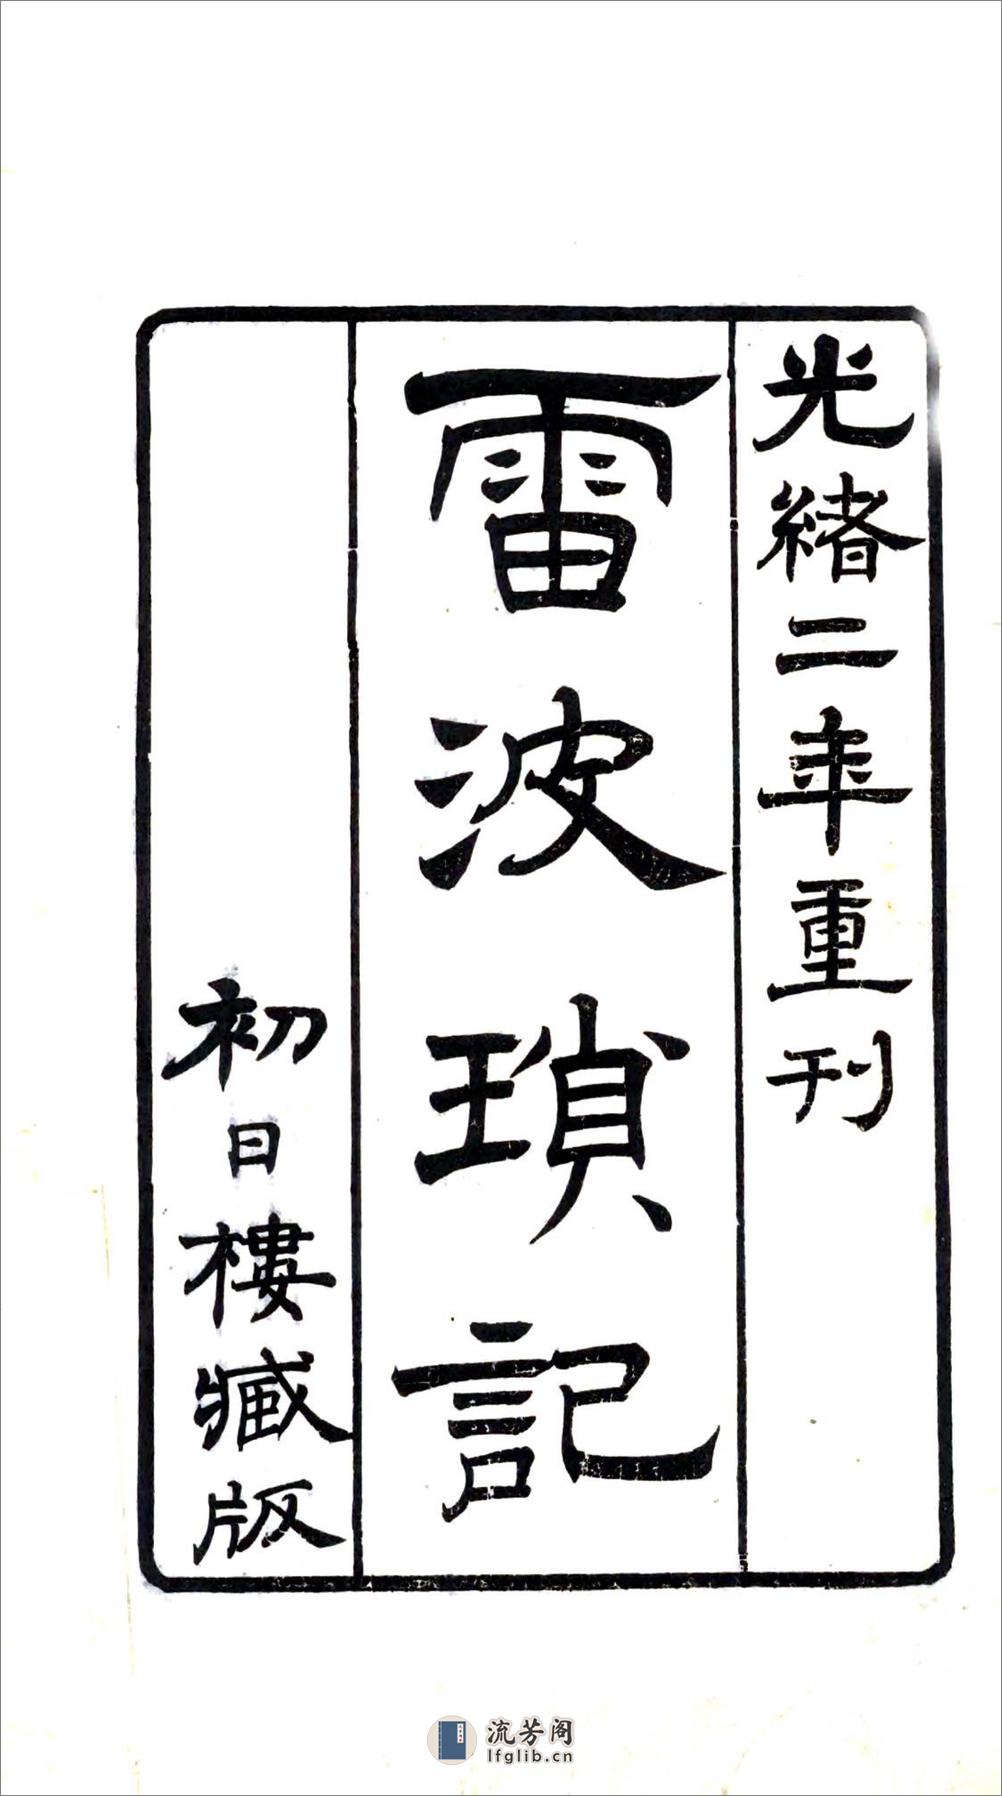 光緒二年重刊
雷波瑣記
初日樓藏版
流芳阁
lfglib.cn